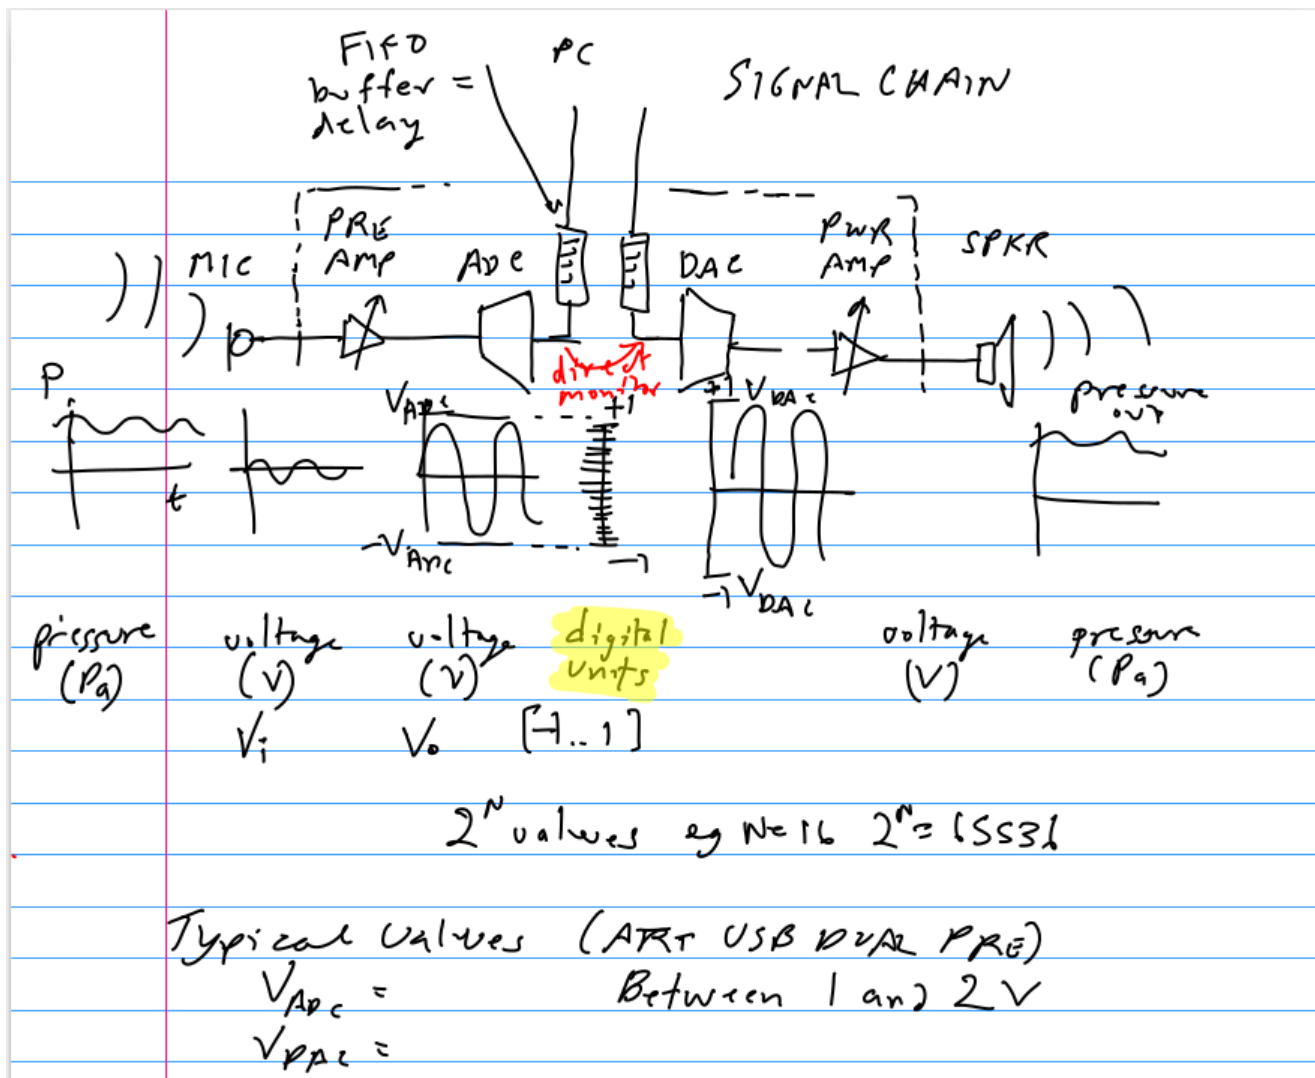 FIFO
buffer =
delay
PC
SIGNAL CHAIN
MIC
PRE
AMP
ADC
DAC
PWR
AMP
SPKR
direct
monitor
P
t
VADC
-VADC
+1
-1
+1 VDAC
-1 VDAC
pressure
out
pressure
(Pa)
voltage
(V)
Vi
voltage
(V)
Vo
digital
units
[-1..1]
voltage
(V)
pressure
(Pa)
2^N values eg N=16 2^N=65536
Typical values (ART USB DUAL PRE)
VADC = Between 1 and 2 V
VDAC =